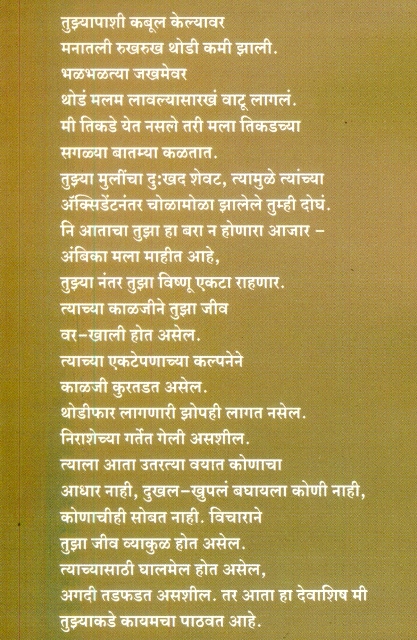 तुझ्यापाशी कबूल केल्यावर
मनातली रुखरुख थोडी कमी झाली.
भळभळत्या जखमेवर
थोडं मलम लावल्यासारखं वाटू लागलं.
मी तिकडे येत नसले तरी मला तिकडच्या
सगळ्या बातम्या कळतात.
तुझ्या मुलींचा दुःखद शेवट, त्यामुळे त्यांच्या
अ‍ॅक्सिडेंटनंतर चोळामोळा झालेले तुम्ही दोघं.
नि आताचा तुझा हा बरा न होणारा आजार –
अंबिका मला माहीत आहे,
तुझ्या नंतर तुझा विष्णू एकटा राहणार.
त्याच्या काळजीने तुझा जीव
वर-खाली होत असेल.
त्याच्या एकटेपणाच्या कल्पनेने
काळजी कुरतडत असेल.
थोडीफार लागणारी झोपही लागत नसेल.
निराशेच्या गर्तेत गेली असशील.
त्याला आता उतरत्या वयात कोणाचा
आधार नाही, दुखल-खुपलं बघायला कोणी नाही,
कोणाचीही सोबत नाही. विचाराने
तुझा जीव व्याकुळ होत असेल.
त्याच्यासाठी घालमेल होत असेल,
अगदी तडफडत असशील. तर आता हा देवाशिष मी
तुझ्याकडे कायमचा पाठवत आहे.